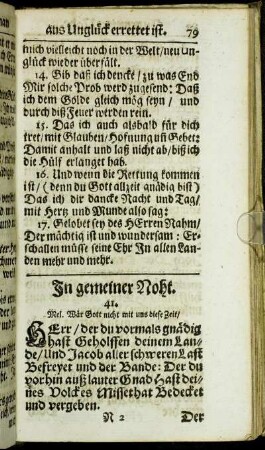 aus Unglück errettet ist. 79
mich vielleicht noch in der Welt/ neu Un-
glück wieder überfält.
14. Gib daß ich dencke/ zu was End
Mir solche Prob werd zugesend: Daß
ich dem Golde gleich mög seyn/ und
durch diß Feuer werden rein.
15. Das ich auch alsbald für dich
tret/ mit Glauben/ Hofnung uñ Gebet:
Damit anhalt und laß nicht ab/ biß ich
die Hülf erlanget hab.
16. Und wenn die Rettung kommen
ist/ (denn du Gott allzeit gnädig bist)
Das ich dir dancke Nacht und Tag/
mit Hertz und Munde also sag:
17. Gelobet sey des HErren Nahm/
Der mächtig ist und wundersam: Er-
schallen müsse seine Ehr In allen Lan-
den mehr und mehr.
In gemeiner Noht.
41.
Mel. Wär Gott nicht mit uns diese Zeit/
HErr/ der du vormals gnädig
hast Geholffen deinem Lan-
de/ Und Jacob aller schweren Last
Befreyet und der Bande: Der du
vorhin auß lauter Gnad Hast dei-
nes Volckes Missethat Bedecket
und vergeben.
N 2 Der